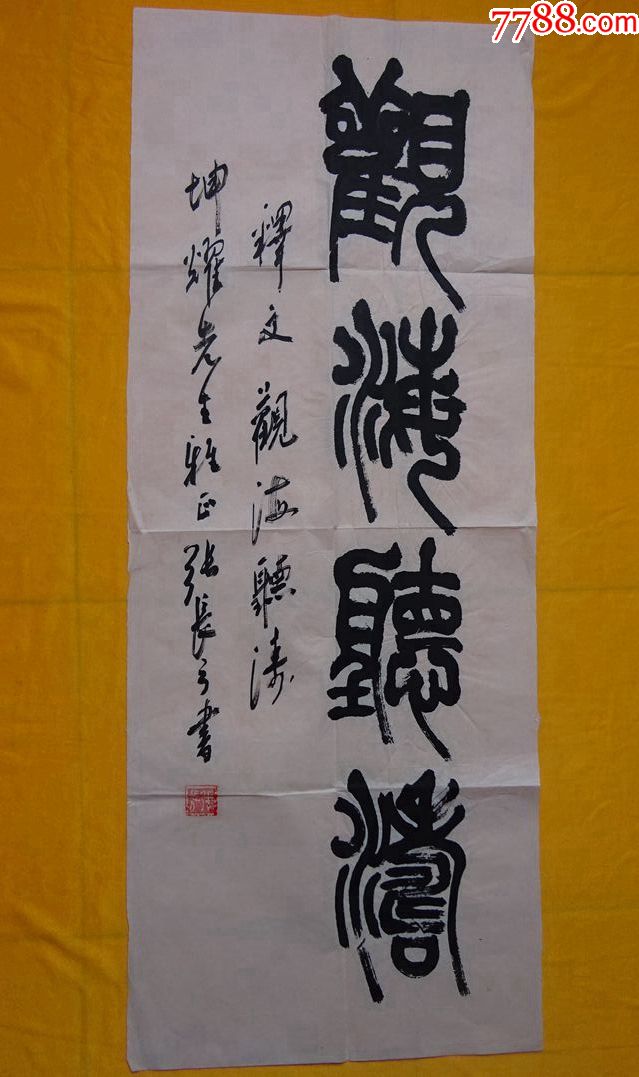 7788.com
觀海聽濤
釋文 觀海聽涛
坤耀先生雅正 張長弓書